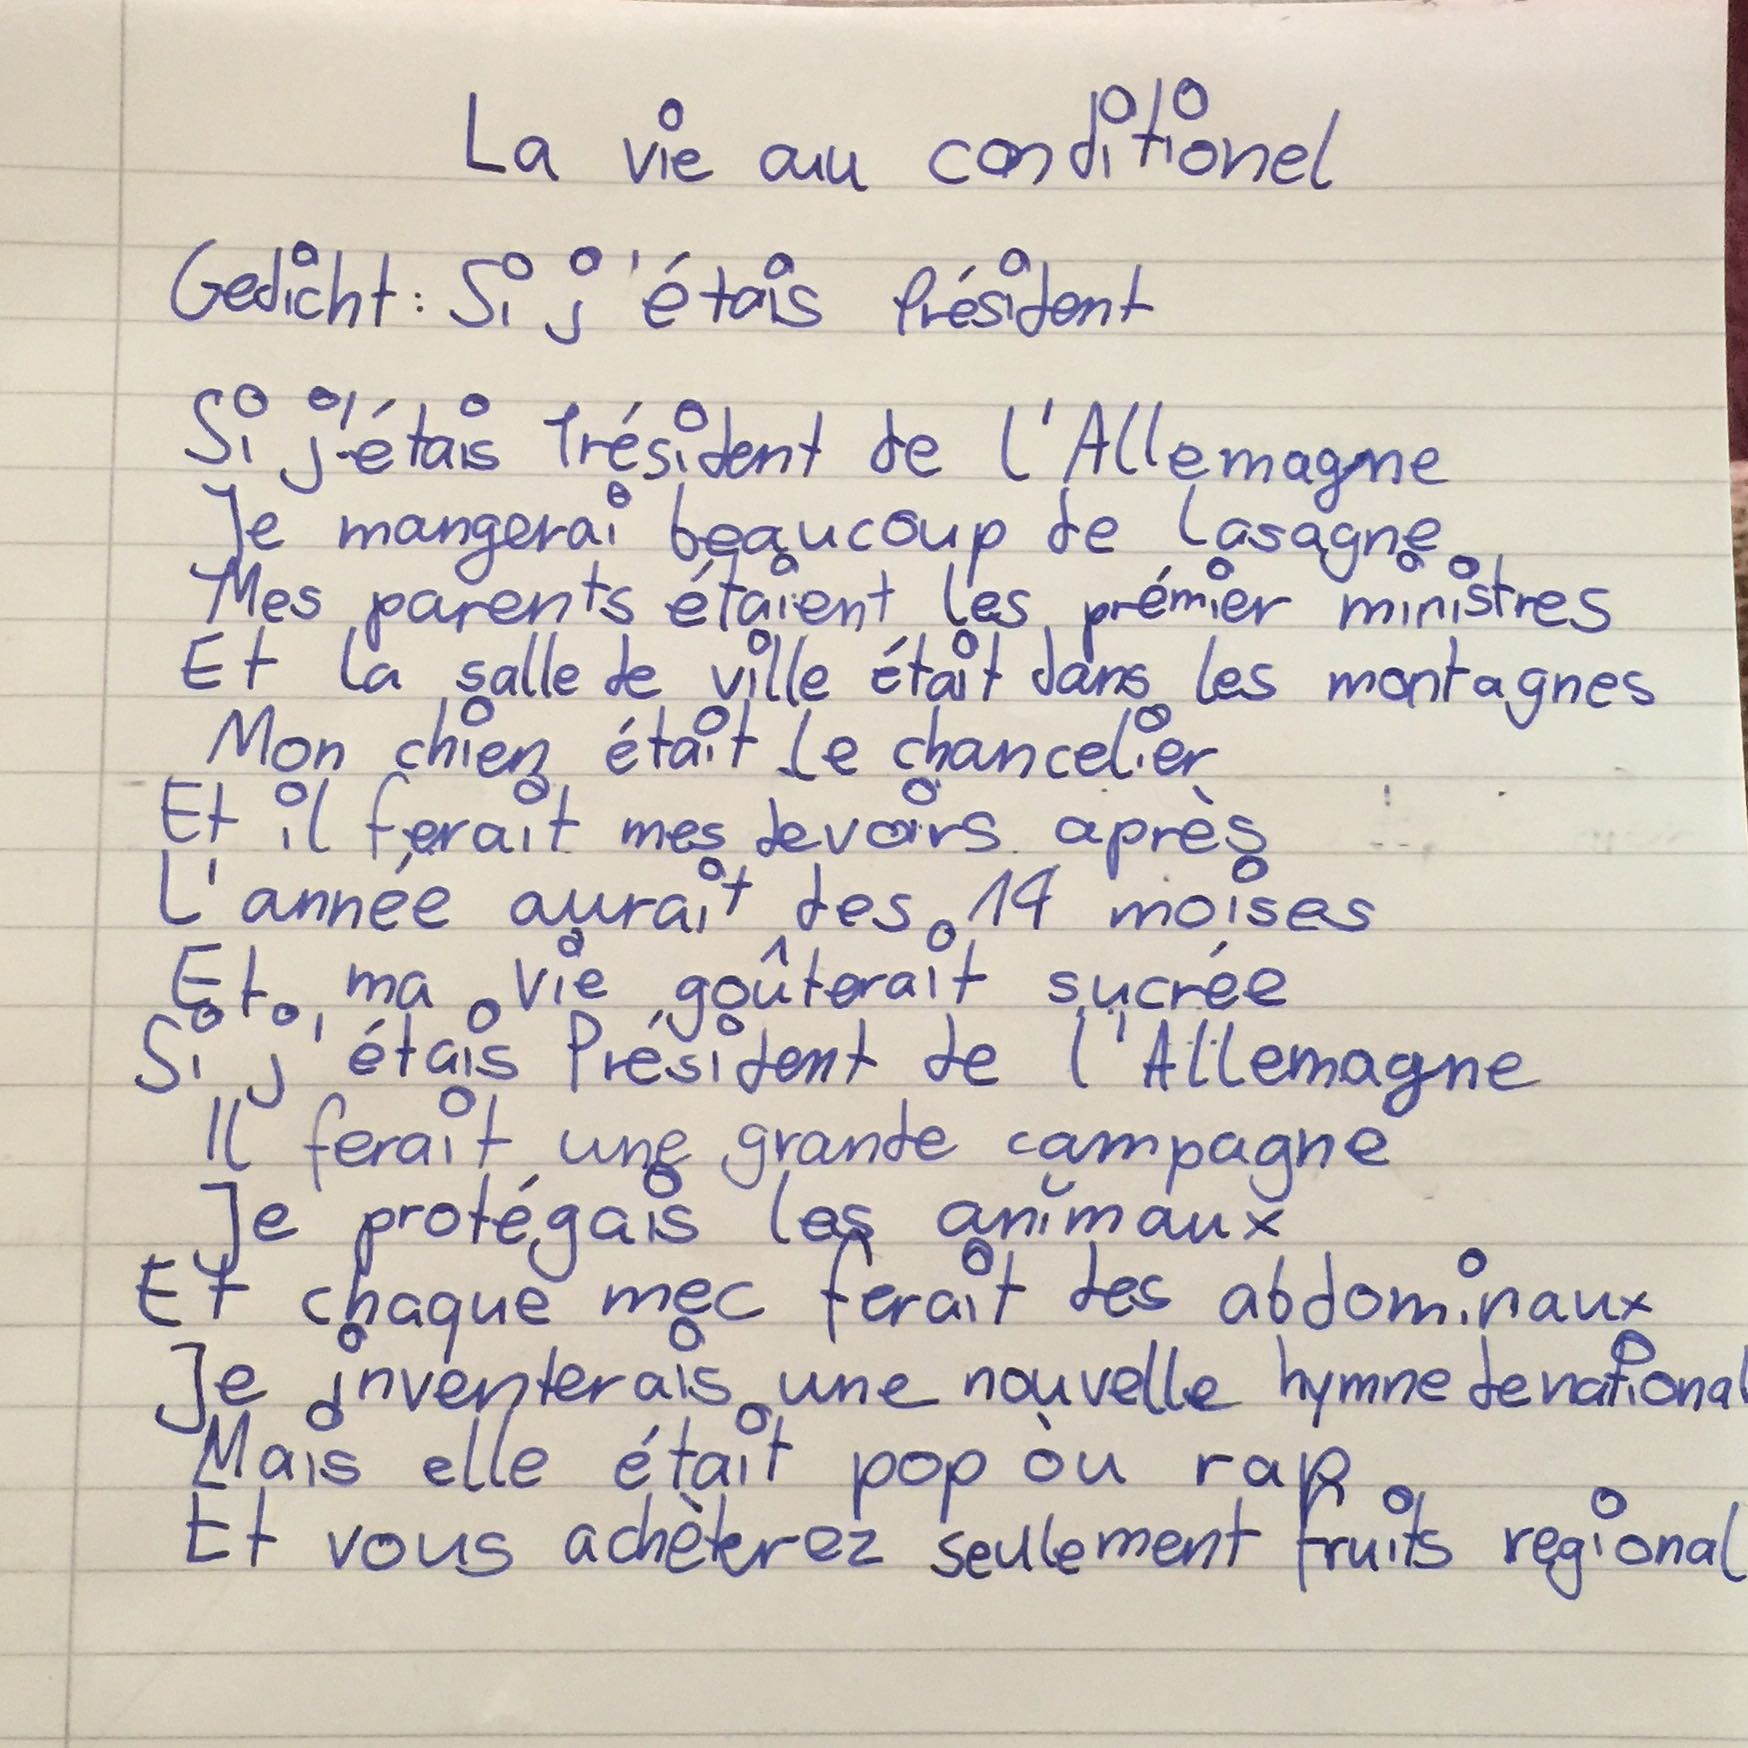 La vie au conditionel
Gedicht: Si j'étais Président
Si j'étais Président de l'Allemagne
Je mangerai beaucoup de lasagne
Mes parents étaient les prémier ministres
Et la salle de ville était dans les montagnes
Mon chien était le chancelier
Et il ferait mes devoirs après
L'année aurait des 14 moises
Et ma vie goûterait sucrée
Si j'étais Président de l'Allemagne
Il ferait une grande campagne
Je protégais les animaux
Et chaque mec ferait des abdominaux
Je inventerais une nouvelle hymne de national
Mais elle était pop òu rap
Et vous achèterez seulement fruits regional